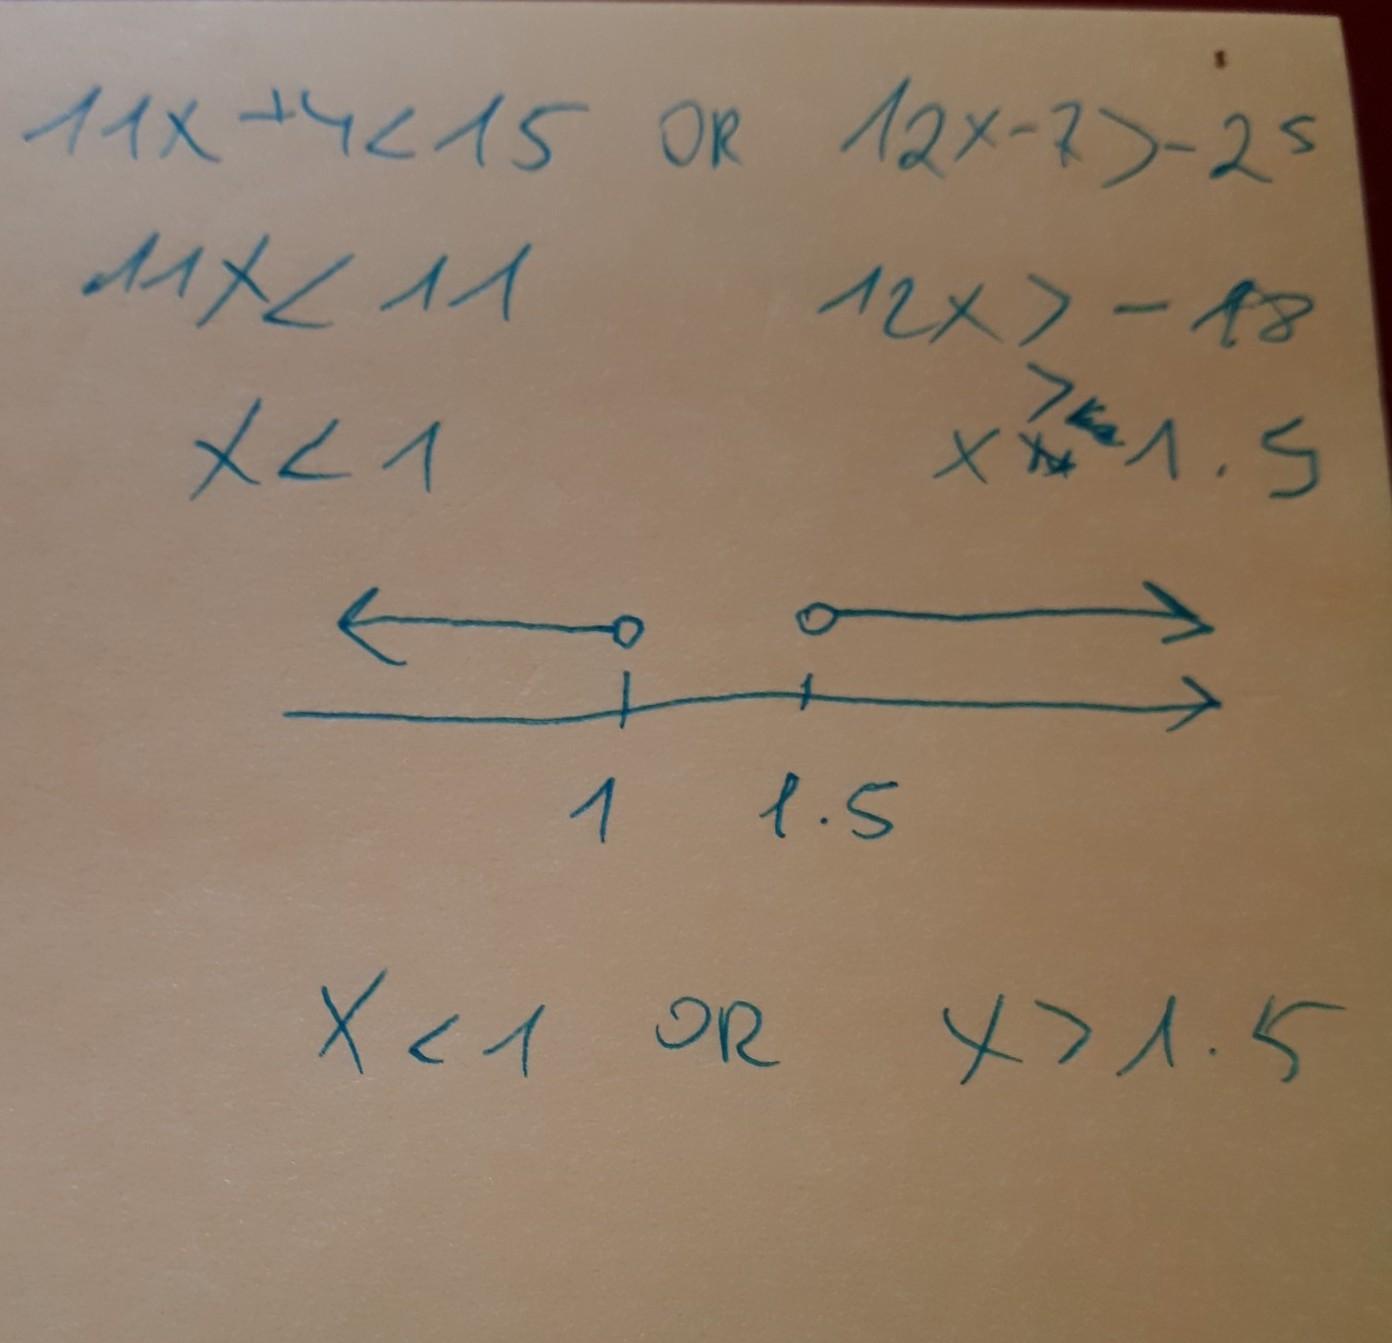 11x+4<15 OR 12x-7>-25
11x<11 12x>-18
>
x<1 x 1.5
1 1.5
x<1 OR x>1.5